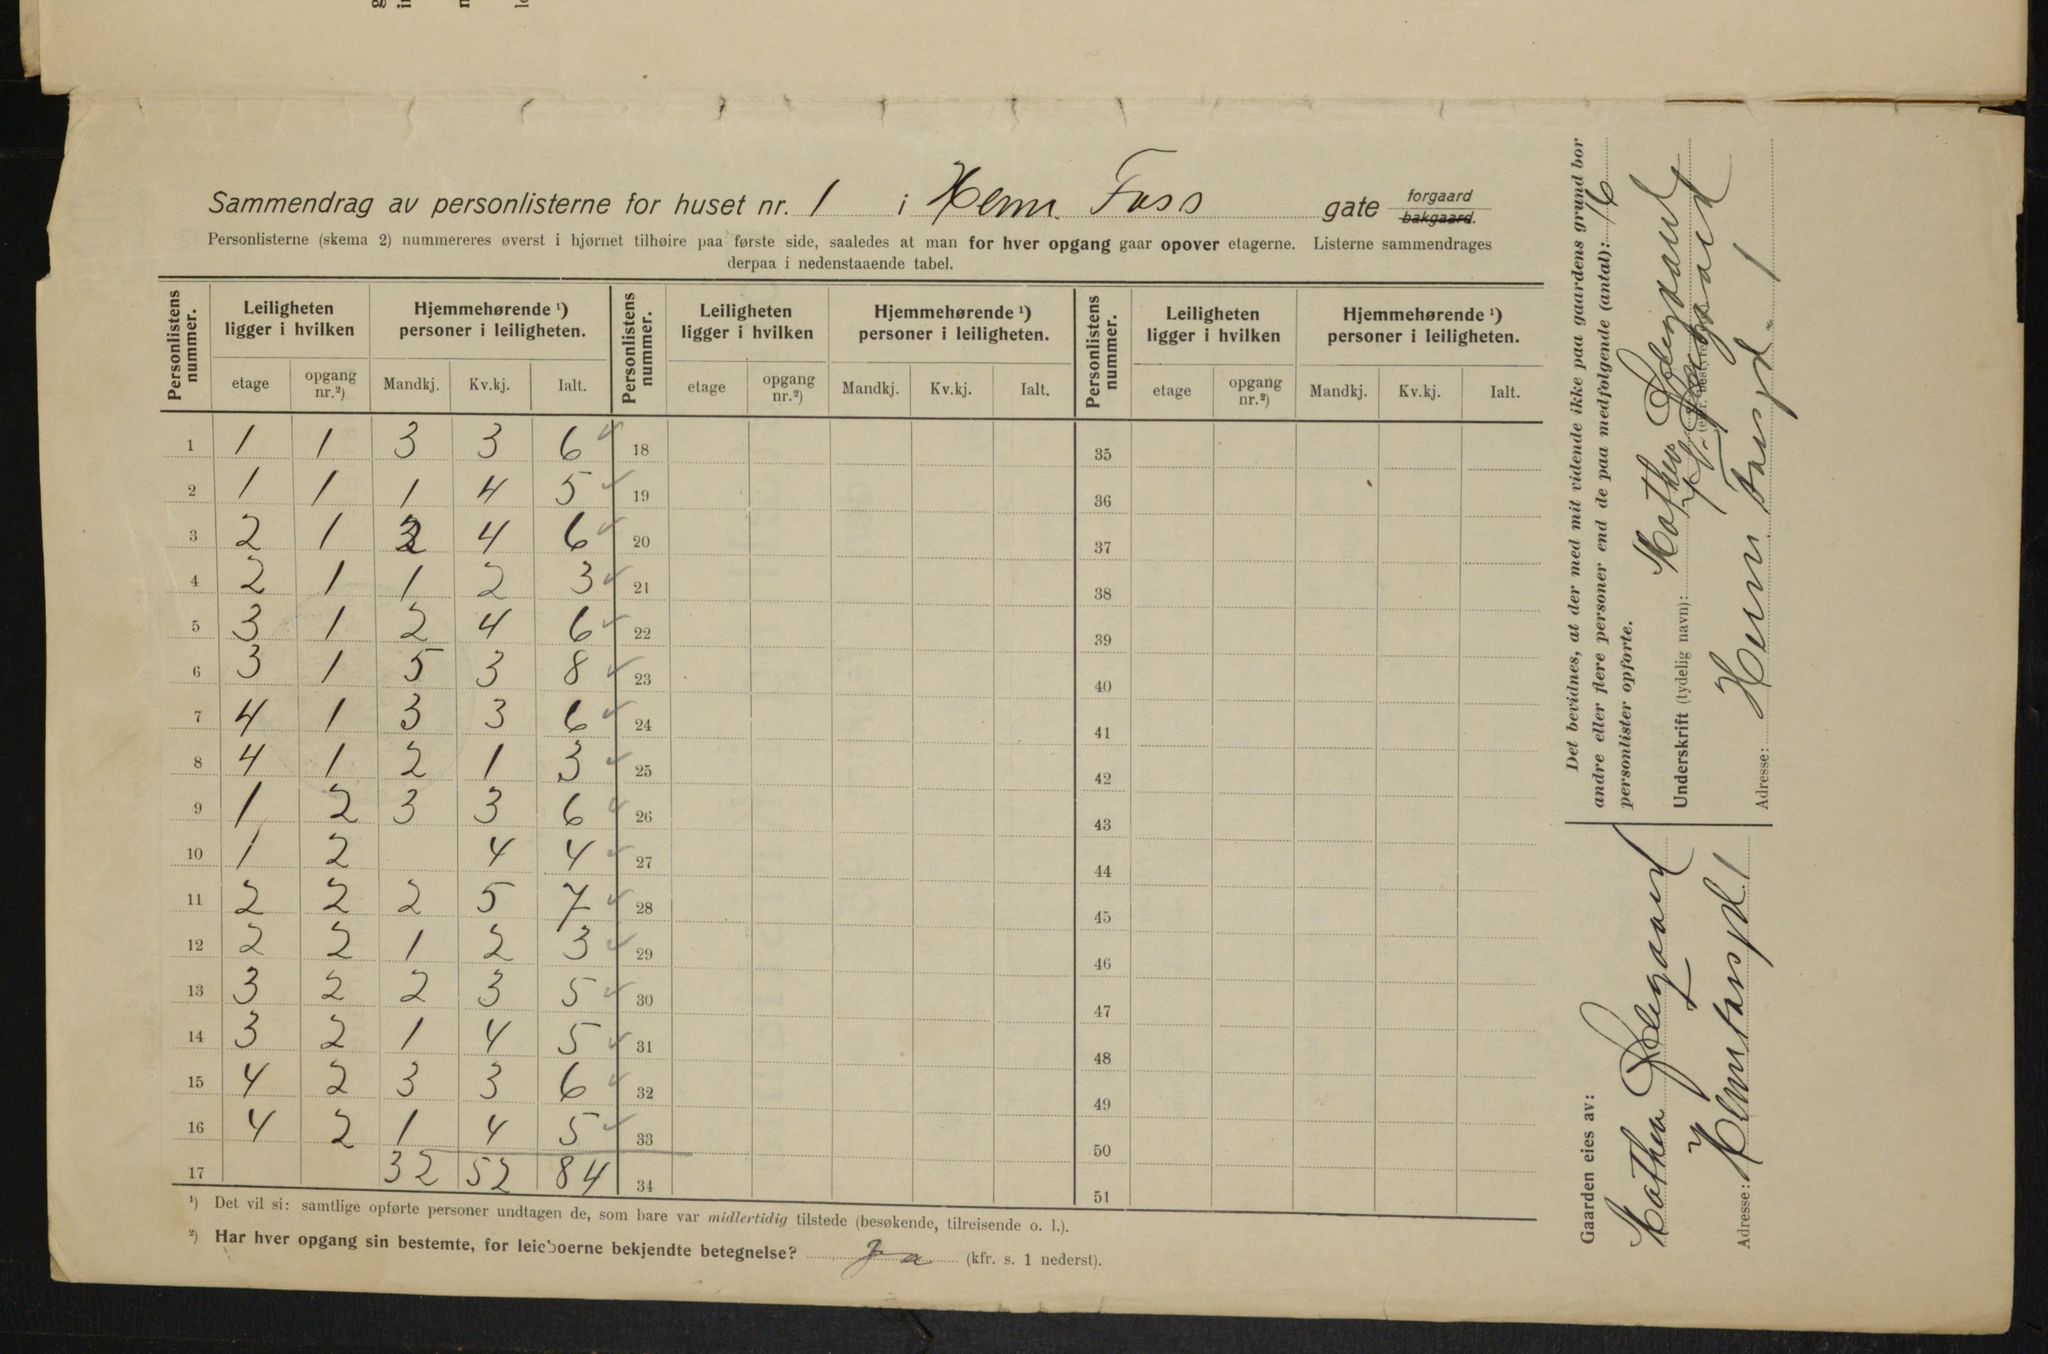 Sammendrag av personlisterne for huset nr. 1 i Herm. Foss gate forgaard bakgaard.
Personlisterne (skema 2) nummereres øverst i hjørnet tilhøire paa første side, saaledes at man for hver opgang gaar opover etagerne. Listerne sammendrages
derpaa i nedenstaaende tabel.
Personlistens nummer. Leiligheten ligger i hvilken Hjemmehørende ¹) personer i leiligheten. Personlistens nummer. Leiligheten ligger i hvilken Hjemmehørende ¹) personer i leiligheten. Personlistens nummer. Leiligheten ligger i hvilken Hjemmehørende ¹) personer i leiligheten.
etage opgang nr.²) Mandkj. Kv.kj. Ialt. etage opgang nr.²) Mandkj. Kv.kj. Ialt. etage opgang nr.²) Mandkj. Kv.kj. Ialt.
1 1 1 3 3 6 18 35
2 1 1 1 4 5 19 36
3 2 1 2 4 6 20 37
4 2 1 1 2 3 21 38
5 3 1 2 4 6 22 39
6 3 1 5 3 8 23 40
7 4 1 3 3 6 24 41
8 4 1 2 1 3 25 42
9 1 2 3 3 6 26 43
10 1 2 4 4 27 44
11 2 2 2 5 7 28 45
12 2 2 1 2 3 29 46
13 3 2 2 3 5 30 47
14 3 2 1 4 5 31 48
15 4 2 3 3 6 32 49
16 4 2 1 4 5 33 50
17 32 52 84 34 51
¹) Det vil si: samtlige opførte personer undtagen de, som bare var midlertidig tilstede (besøkende, tilreisende o. l.).
²) Har hver opgang sin bestemte, for leieboerne bekjendte betegnelse? Ja (kfr. s. 1 nederst).
Det bevidnes, at der med mit vidende ikke paa gaardens grund bor
andre eller flere personer end de paa medfølgende (antal): 16
personlister opførte.
Underskrift (tydelig navn):
Adresse: 1
Gaarden eies av:
Adresse: 1